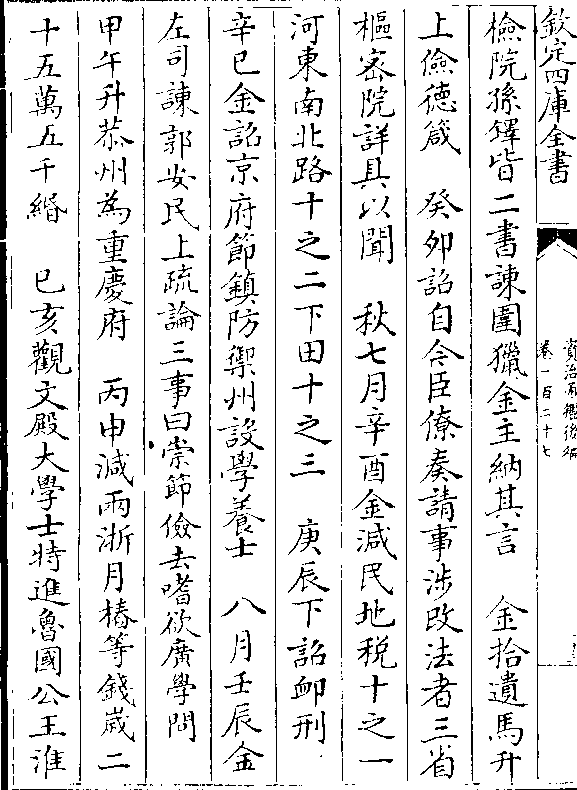 欽定四庫全書
資治通鑑後編
卷一百二十七
檢院孫鐸皆二書諫圍獵金主納其言　金拾遺馬升
上儉德箴　癸卯詔自今臣僚奏請事涉改法者三省
樞密院詳具以聞　秋七月辛酉金減民地稅十之一
河東南北路十之二下田十之三　庚辰下詔卹刑
辛巳金詔京府節鎮防禦州設學養士　八月壬辰金
左司諫郭安民上疏論三事曰崇節儉去嗜欲廣學問
甲午升恭州為重慶府　丙申減兩浙月樁等錢歲二
十五萬五千緡　己亥觀文殿大學士特進魯國公王淮